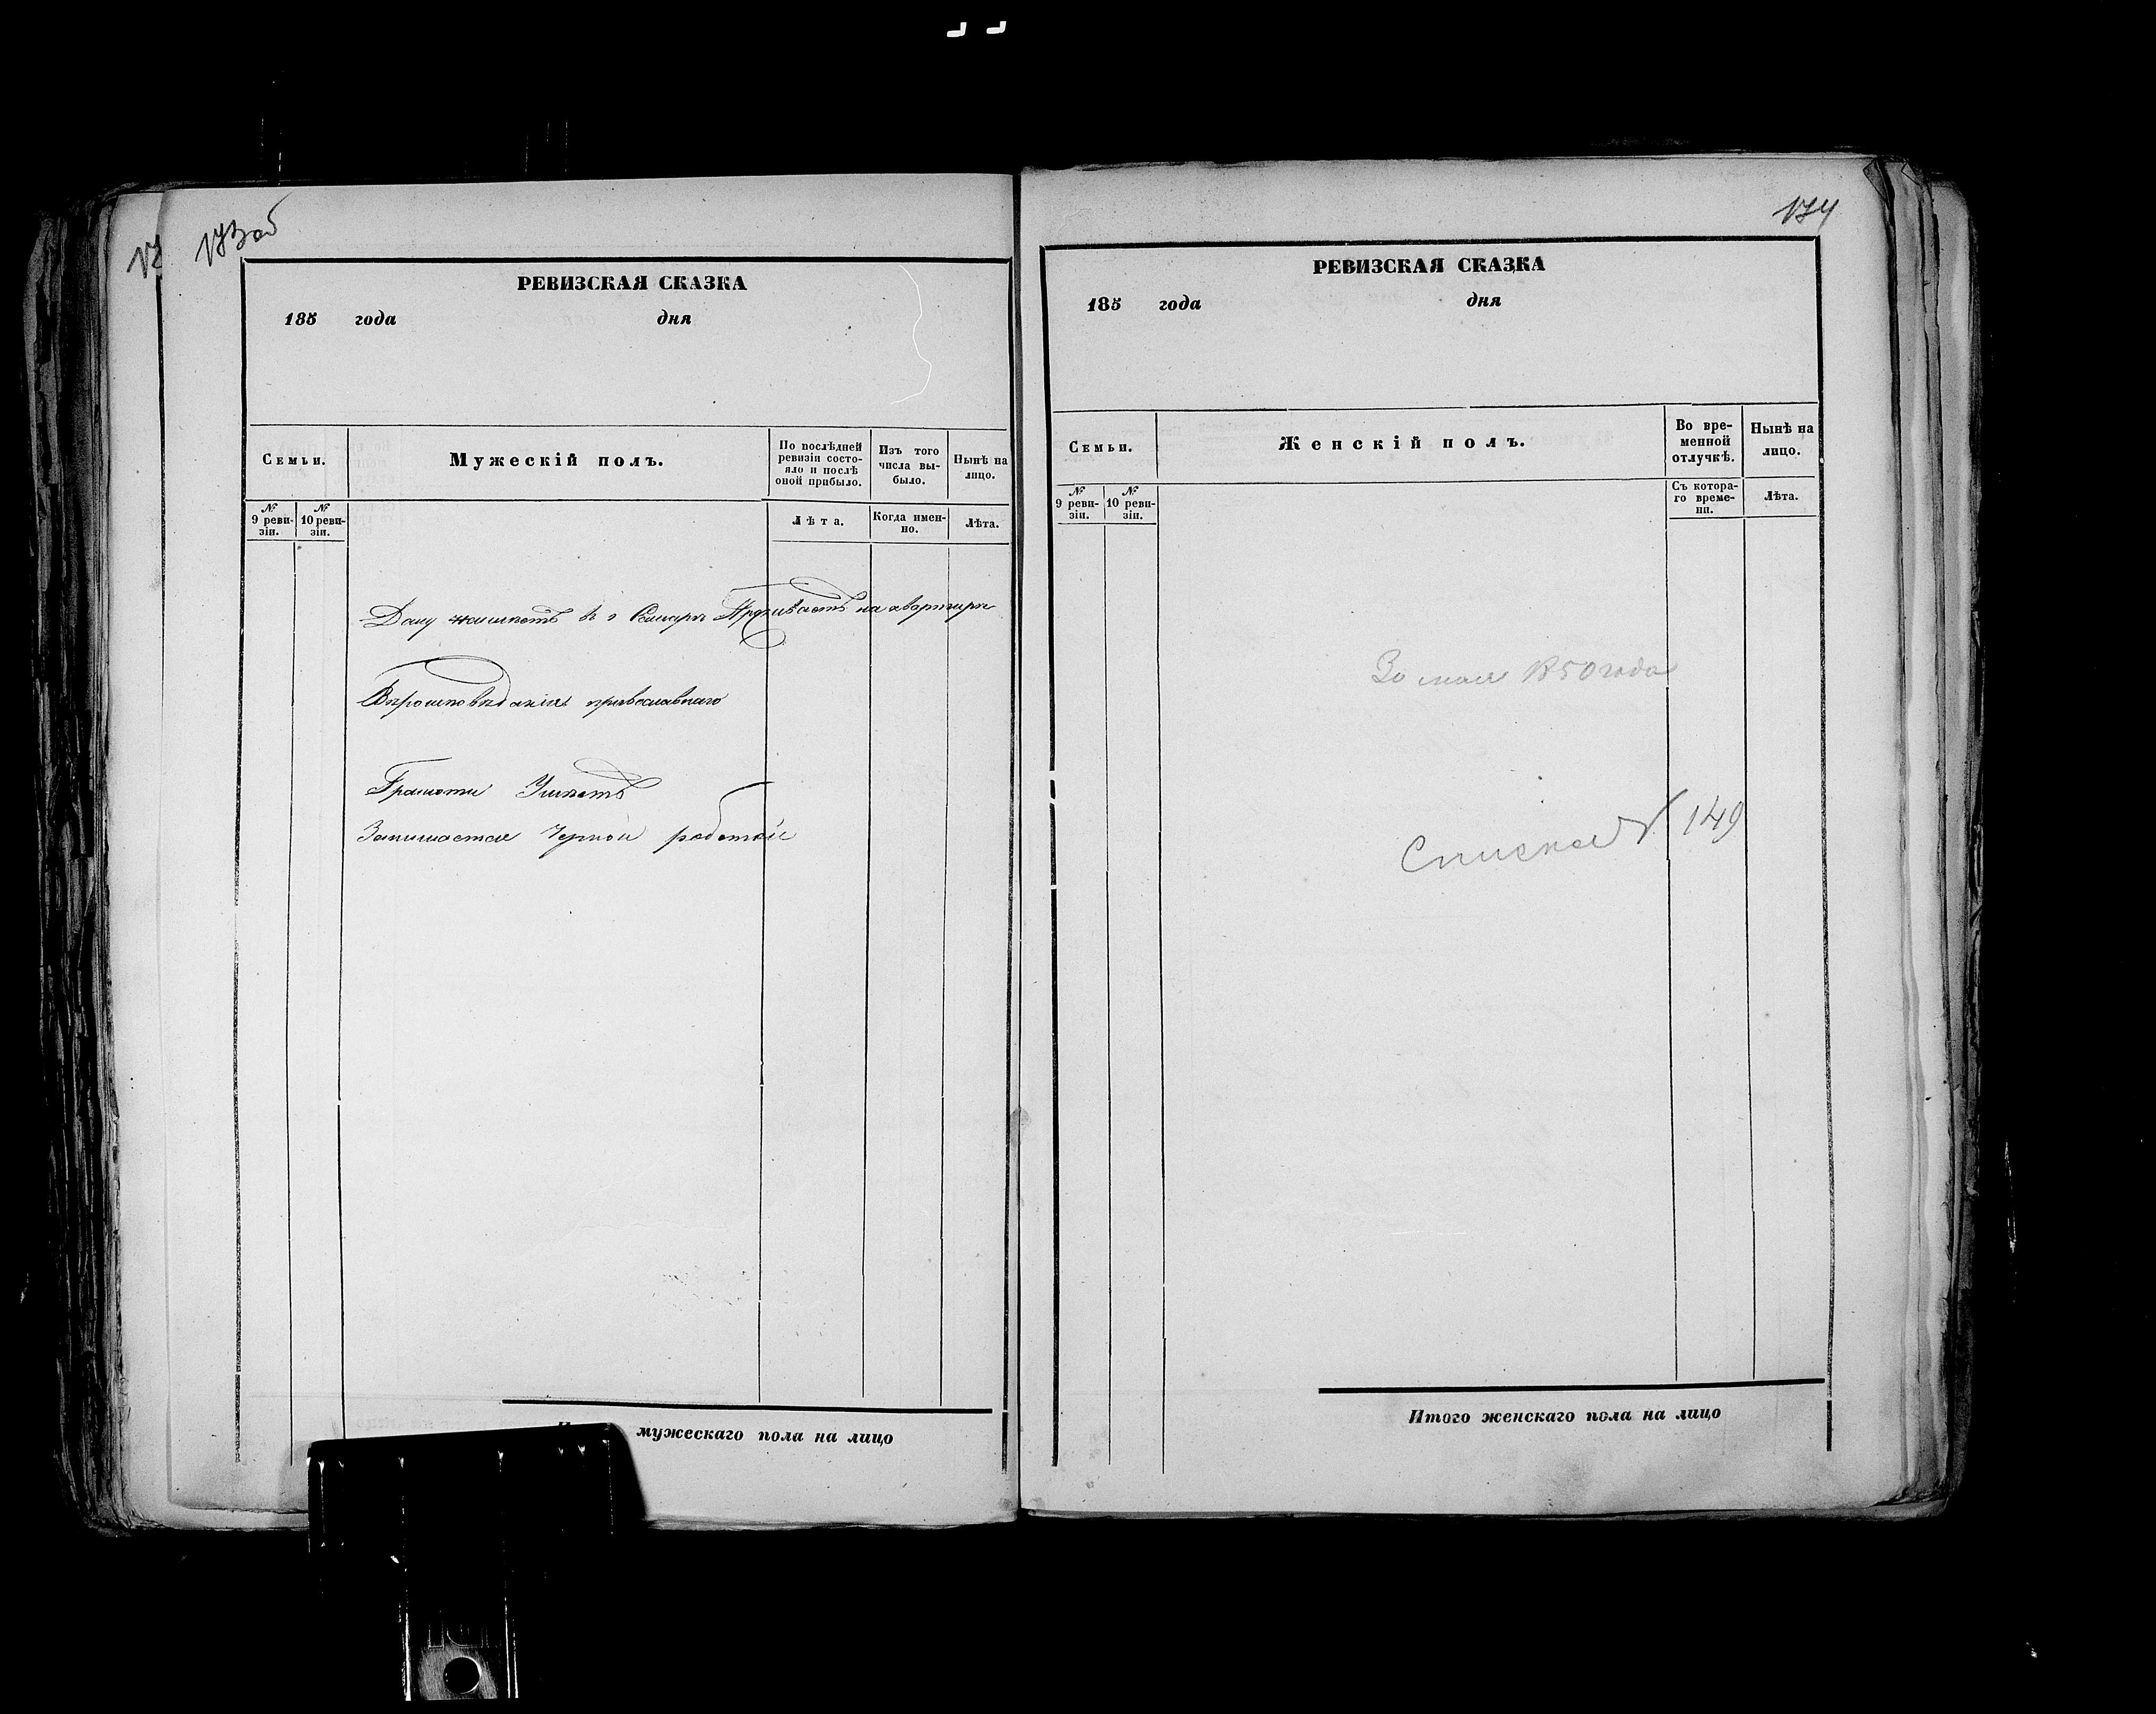 173об
РЕВИЗСКАЯ СКАЗКА
185 года дня
Семьи.
Мужескій полъ.
По послѣдней ревизіи состояло и послѣ оной прибыло.
Изъ того числа выбыло.
Нынѣ на лицо.
№ 9 ревизіи.
№ 10 ревизіи.
Лѣта.
Когда именно.
Лѣта.
Дому неимѣетъ в г Самарѣ Проживаетъ на квартирѣ
Вѣроисповѣданія православнаго
Грамоти Умѣетъ
Занимается Черной работой
мужескаго пола на лицо
174
РЕВИЗСКАЯ СКАЗКА
185 года дня
Семьи.
Женскій полъ.
Во временной отлучкѣ.
Нынѣ на лицо.
№ 9 ревизіи.
№ 10 ревизіи.
Съ котораго времени.
Лѣта.
30 мая 1850 года
Списка № 149
Итого женскаго пола на лицо